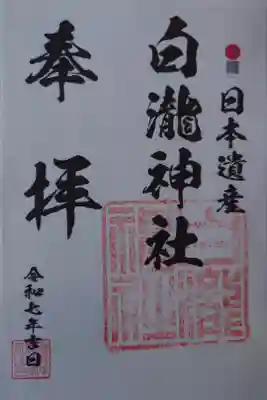 日本遺産
白瀧神社
奉拝
令和七年吉日